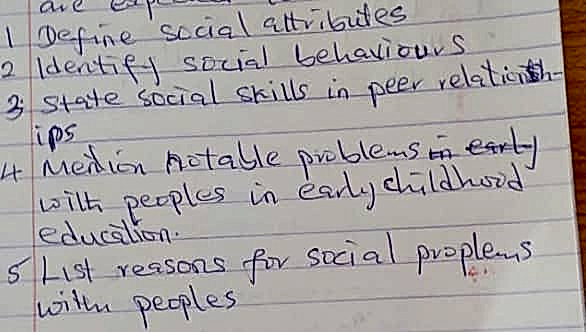 are
1 Define social attributes
2 Identify social behaviours
3 State social skills in peer relationsh-
ips
4 Mention notable problems in early
with peoples in early childhood
education.
5 List reasons for social proplems
with peoples